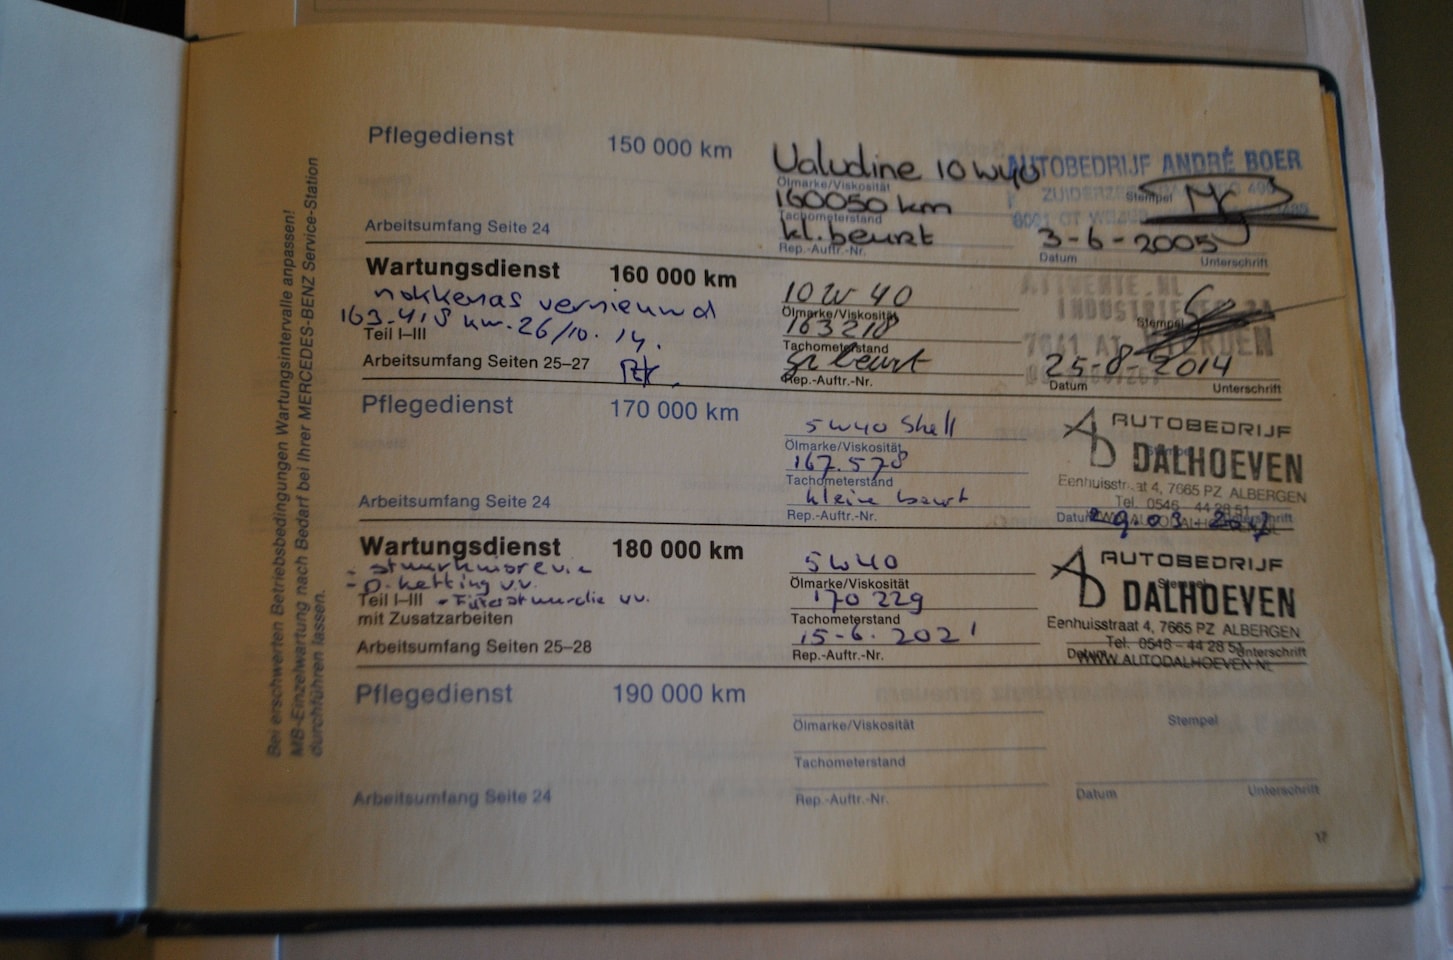 Bei erschwerten Betriebsbedingungen Wartungsintervalle anpassen!
MB-Einzelwartung nach Bedarf bei Ihrer MERCEDES-BENZ Service-Station
durchführen lassen.
Pflegedienst 150 000 km
Valudine 10W40
Ölmarke/Viskosität
160050 km
Tachometerstand
kl. beurt
Rep.-Auftr.-Nr.
AUTOBEDRIJF ANDRÉ BOER
Stempel
3-6-2005
Datum Unterschrift
Arbeitsumfang Seite 24
Wartungsdienst 160 000 km
nokkenas vernieuwd
163.418 km. 26/10. 14.
Teil I–III
Arbeitsumfang Seiten 25–27
10W40
Ölmarke/Viskosität
163218
Tachometerstand
gr beurt
Rep.-Auftr.-Nr.
Stempel
25-8-2014
Datum Unterschrift
Pflegedienst 170 000 km
5W40 Shell
Ölmarke/Viskosität
167.578
Tachometerstand
kleine beurt
Rep.-Auftr.-Nr.
AD AUTOBEDRIJF
DALHOEVEN
Eenhuisstraat 4, 7665 PZ ALBERGEN
Tel. 0546 - 44 28 51
Datum Unterschrift
Arbeitsumfang Seite 24
Wartungsdienst 180 000 km
Teil I–III
mit Zusatzarbeiten
Arbeitsumfang Seiten 25–28
5W40
Ölmarke/Viskosität
170229
Tachometerstand
15-6-2021
Rep.-Auftr.-Nr.
AD AUTOBEDRIJF
Stempel
DALHOEVEN
Eenhuisstraat 4, 7665 PZ ALBERGEN
Tel. 0546 - 44 28 51
Datum Unterschrift
WWW.AUTODALHOEVEN.NL
Pflegedienst 190 000 km
Ölmarke/Viskosität
Stempel
Tachometerstand
Arbeitsumfang Seite 24
Rep.-Auftr.-Nr.
Datum Unterschrift
17